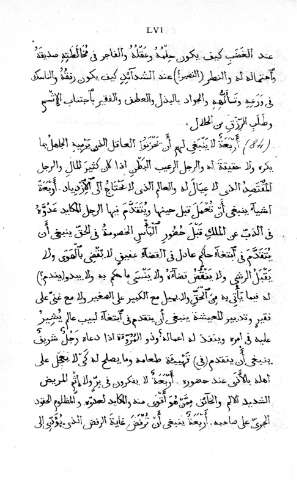 LVI
عند الغضب كيف يكون حلمُهُ وعقلُهُ والفاجر في مخالطتِهِ صديقَهُ
واحتماله له والنظر (التبصر) عند الشدائد كيف يكون رفقُهُ والناسك
في ورعِهِ وتألُّهِهِ والجواد بالبذل والعطف والفقير باجتناب الإثم
وطلب الرزق من الحلال
أربعةٌ لا ينبغي لهم أن يحزنوا العاقل الذي يرميه الجاهل بما
يكره ولا حقيقة له والرجل الرغيب البطن اذا كان كثير المال والرجل
المقتصد الذي لا عيال له والعالم الذي لا يحتاج الى الازدياد. أربعة
أشياء ينبغي أن تُعمل قبل حينها ويتقدم فيها الرجل المكابد عدوَّهُ
في الذبّ عن الملك قبل حضور البأس الخصومة في الحق ينبغي أن
يُتقدم في ابتغاء حاكم عادل في القضاء عفيف لا يقضي بالهوى ولا
يقبل الرشى ولا ينقض قضاءهُ ولا ينسى ما حكم به ولا يبدو (يندم؟)
له فيما يأتي به من الحق ولا يميل مع الكبير على الصغير ولا مع غني على
فقير وتدبير المعيشة ينبغي أن يتقدم في ابتغاء لبيب عالم يُشير
عليه في امره وينفذ له اعماله وذو المروّة اذا دعاه رجل شريف
ينبغي أن يتقدم (في) تهيئة طعامه وما يصلح له كي لا يعجل على
أهله بالأذى عند حضوره. أربعة لا يفكرون في برّ ولا إثم المريض
الشديد الألم والخائف ممن هو أقوى منه والمكابد لعدوّه والمظلوم الحقود
الجريء على صاحبه. أربعة ينبغي أن تُرفض غاية الرفض الذي يؤدي إلى